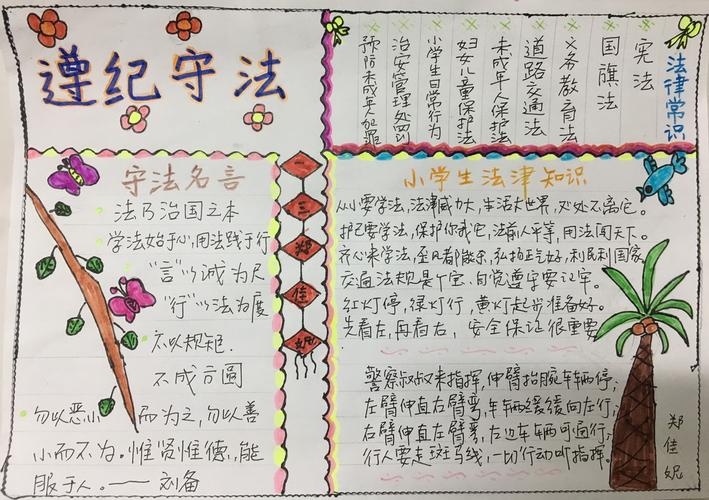 遵纪守法
法律常识
宪法
国旗法
义务教育法
道路交通法
未成年人保护法
妇女儿童保护法
小学生日常行为
治安管理处罚
预防未成年人犯罪
守法名言
法乃治国之本
学法始于心,用法践于行
“言”以诚为尺
“行”以法为度
不以规矩.
不成方圆
勿以恶小而为之,勿以善
小而不为。惟贤惟德,能
服于人。——刘备
一三郑佳妮
小学生法津知识
从小要学法,法津威力大,生活大世界,处处不离它。
护己要学法,保护你我它,法前人平等,用法闯天下。
齐心来学法,至凡都散余,弘拍正气好,利民利国家
交通法规是个宝,自觉遵守要记牢。
红灯停,绿灯行,黄灯起步准备好。
先看左,再看右,安全保证很重要
警察叔叔来指挥,伸臂抬腕车辆停,
左臂伸直右臂弯,车辆缓缓向左行,
右臂伸直左臂弯,右边车辆可通行,
行人要走斑马线,一切行动听指挥。
郑佳妮